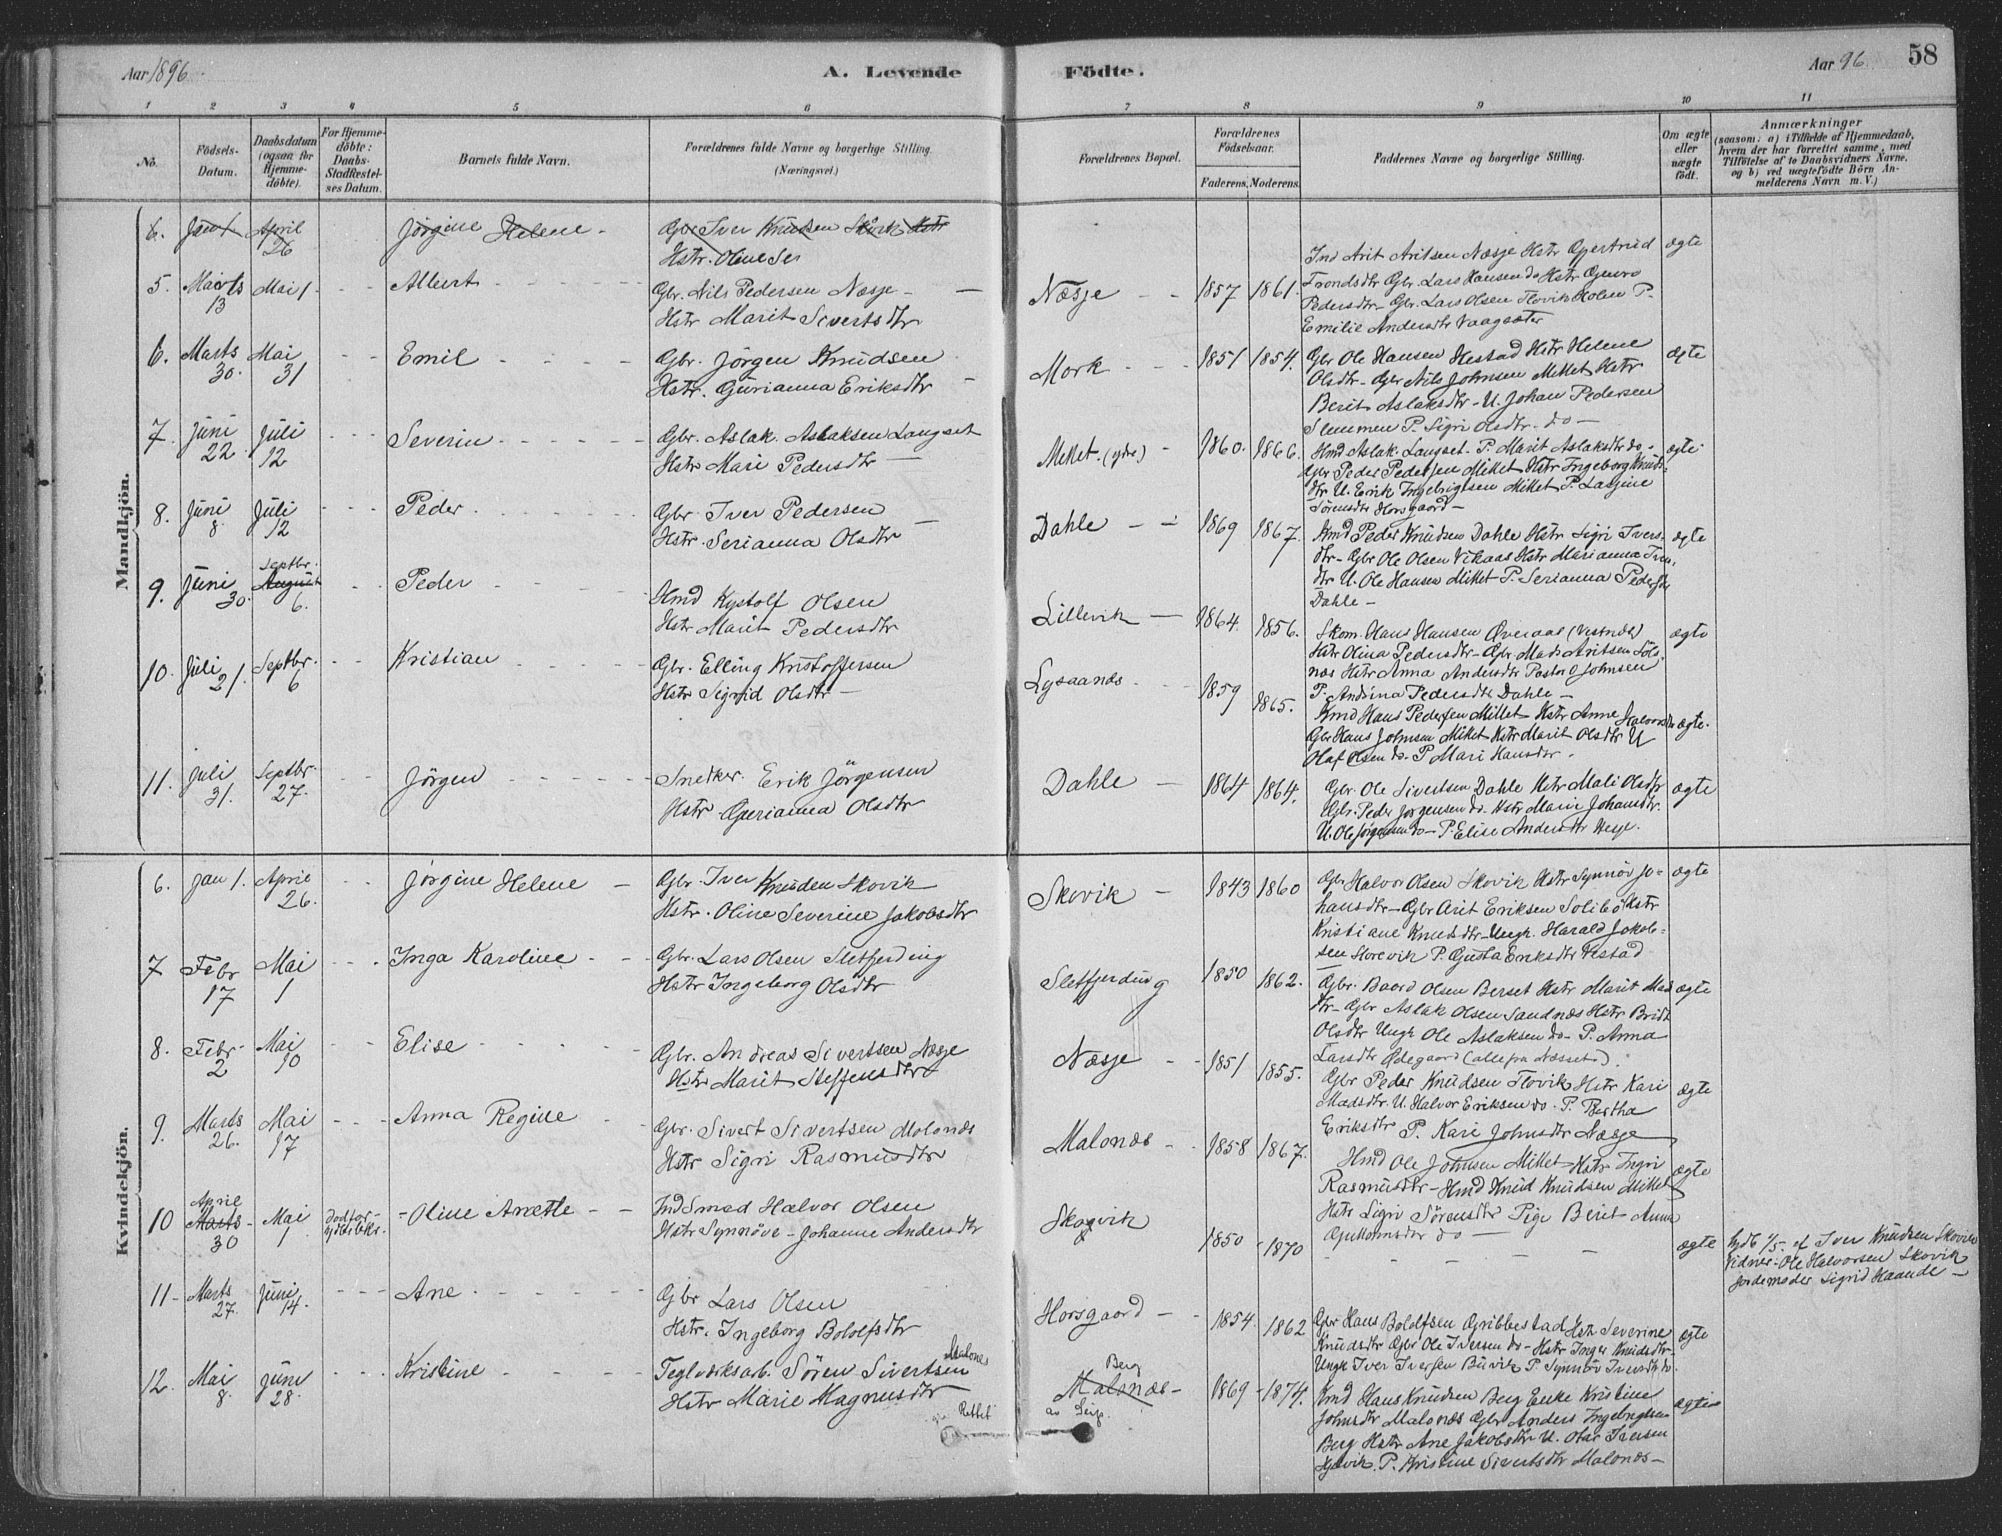 Aar 1896.
A. Levende Födte.
Aar 96.
58
1 2 3 4 5 6 7 8 9 10 11
No.
Födsels-Datum.
Daabsdatum (ogsaa for Hjemme-döbte).
For Hjemme-döbte: Daabs-Stadfæstel-ses Datum.
Barnets fulde Navn.
Forældrenes fulde Navne og borgerlige Stilling. (Næringsvei.)
Forældrenes Bopæl.
Forældrenes Födselsaar.
Faderens. Moderens.
Faddernes Navne og borgerlige Stilling.
Om ægte eller uægte födt.
Anmærkninger
(saasom: a) i Tilfælde af Hjemmedaab, hvem der har forrettet samme, med Tilföielse af to Daabsvidners Navne, og b) ved uægtefödte Börn An-melderens Navn m. V.)
Mandkjön.
6. Jan 1 April 26 Jörgine Helene - Gbr Iver Knudsen Skovik Hstr
Hstr. Oline Se
5. Marts 13 Mai 1 - - Albert Gbr. Nils Pedersen Næsje -
Hstr Marit Sivertsdtr
Næsje - - 1857 1861.
Ind Arit Aritsen Næsje Hstr Gjertrud
Trondsdtr Gbr Lars Hansen do Hstr Guro
Pedersdtr - Gbr. Lars Olsen Tlovik Holm P.
Emilie Andersdtr Vaagsæter
ægte
6. Marts 30. Mai 31 - - Emil Gbr. Jörgen Knudsen
Hstr. Gurianna Eriksdtr
Mork - - - 1851 1854.
Gbr Ole Hansen Hestad Hstr Helene
Olsdtr - Gbr Nils Johnsen Mittet Hstr
Berit Aslaksdtr - U. Johan Pedersen
Slemmen P. Sigri Olsdtr. do -
ægte
7. Juni 22 Juli 12 - - - Severin Gbr. Aslak Aslaksen Langset
Hstr Mari Pedersdtr
Mittet (ydre) - 1860. 1866.
Kmd Aslak Langset - P. Marit Aslaksdtr do -
Gbr Peder Pedersen Mittet Hstr Ingeborg Knuds-
dtr U. Erik Ingebrigtsen Mittet P. Lasjine
Sörensdtr Horsgaard -
ægte
8. Juni 8. Juli 12 - - - Peder Gbr Iver Pedersen
Hstr. Serianna Olsdtr
Dahle - - 1869 1867.
Kmd Peder Knudsen Dahle Hstr Sigri Ivers-
dtr - Gbr Ole Olsen Vikaas Hstr Marianna
dtr U. Ole Hansen Mittet P. Serianna Pedersdtr
Dahle -
ægte
9. Juni 30. Septbr. August 6. - - Peder Hmd Kystolf Olsen
Hstr Marit Pedersdtr
Lillevik - 1864. 1856.
Skom. Hans Hansen Överaas (Vestnæs)
Hstr Olina Pedersdtr - Gbr. Mads Aritsen Söls-
næs Hstr Anna Andersdtr Pastor O Johnsen
P. Andrina Pedersdtr Dahle -
ægte
10. Juli 21. Septbr. 6 - - Kristian Gbr. Elling Kristoffersen
Hstr Sigrid Olsdtr -
Lysaanæs - 1859 1865.
Kmd Hans Pedersen Mittet Hstr Anne Halvorsdtr
Gbr Hans Johnsen Mittet Hstr Marit Olsdtr U
Olaf Olsen do - P Mari Hansdtr.
ægte.
11. Juli 31. Septbr. 27. Jörgen Snedker. Erik Jörgensen
Hstr Gjerianna Olsdtr
Dahle - 1864 1864.
Gbr. Ole Sivertsen Dahle Hstr Mali Olsdtr
Gbr. Peder Jörgensen do - Hstr Marie Johansdtr.
U. Ole Jörgensen do - P. Elise Andersdtr
ægte
Kvindekjön.
6. Jan 1. April 26. - - Jörgine Helene - Gbr. Iver Knudsen Skovik
Hstr. Oline Severine Jakobsdtr
Skovik - 1843 1860
Gbr Halvor Olsen Skovik Hstr Synnöv Jo-
hansdtr - Gbr Arit Eriksen Solibö Hstr
Kristiane Knudsdtr - Ungk. Harald Jakob-
sen Storevik P. Gusta Eriksdtr Hestad
ægte
7 Febr 17 Mai 1 - - - Inga Karoline - - Gbr. Lars Olsen Sletfjerding
Hstr Ingeborg Olsdtr
Sletfjerding 1850 1862.
Gbr. Baard Olsen Berset Hstr Marit Mads
dtr - Gbr Aslak Olsen Sandnæs Hstr Brit
Olsdtr Ungk Ole Aslaksen do - P. Anna
Larsdtr Ödegaard (alle fra Næsset).
ægte
8. Febr. 2 Mai 10 - - Elise Gbr. Andreas Sivertsen Næsje
Hstr Marit Steffensdtr
Næsje - - 1851 1855.
Gbr Peder Knudsen Tlovik Hstr Kari
Madsdtr. U. Halvor Eriksen do. P. Bertha
Eriksdtr P. Kari Johnsdtr Næsje
ægte
9. Marts 26. Mai 17 - - - Anna Regine - - Gbr. Sivert Sivertsen Malonæs
Hstr Sigri Rasmusdtr
Malonæs - - 1858 1867.
Hmd Ole Johnsen Mittet Hstr Ingri
Rasmusdtr - Hmd Knud Knudsen Mittet
Hstr Sigri Sörensdtr Pige Berit Anna
Gjuttormsdtr do -
ægte
10 April Marts - 30 Mai 1 Död for - - Oline Anette - - Ind Smed Halvor Olsen
Hstr Synnöve - Johanne Andersdtr
Skovik 1850 - 1870
- - - - -
ægte
hjdb 1/5. af Iver Knudsen Skovik
Vidner - Ole Halvorsen Skovik
Jordemoder Sigrid Haande -
11 - Marts 27. Juni 14. - - - Ane Gbr Lars Olsen
Hstr. Ingeborg Bololfsdtr
Horsgaard - - 1854 1862
Gbr Hans Boldfsen Gribbestad Hstr Severine
Knudsdtr Gbr Ole Iversen do - Hstr Inger Knudsdtr -
Ungk Iver Iversen Buvik P. Synnöv Iversdtr do.
ægte
12. Mai 8. Juni 28. - - - Kristine Teglværksarb. Sören Sivertsen Malonæs
Hstr Marie Magnusdtr
Rettet
Berg
Malonæs -
av
1869 - 1874.
Kmd Hans Knudsen Berg Enke Kristine
Johnsdtr Malonæs Gbr Anders Ingebrigtsen
Berg Hstr Ane Jakobsdtr U. Olar Iversen
P. Kristine Sivertsdtr Malonæs -
ægte